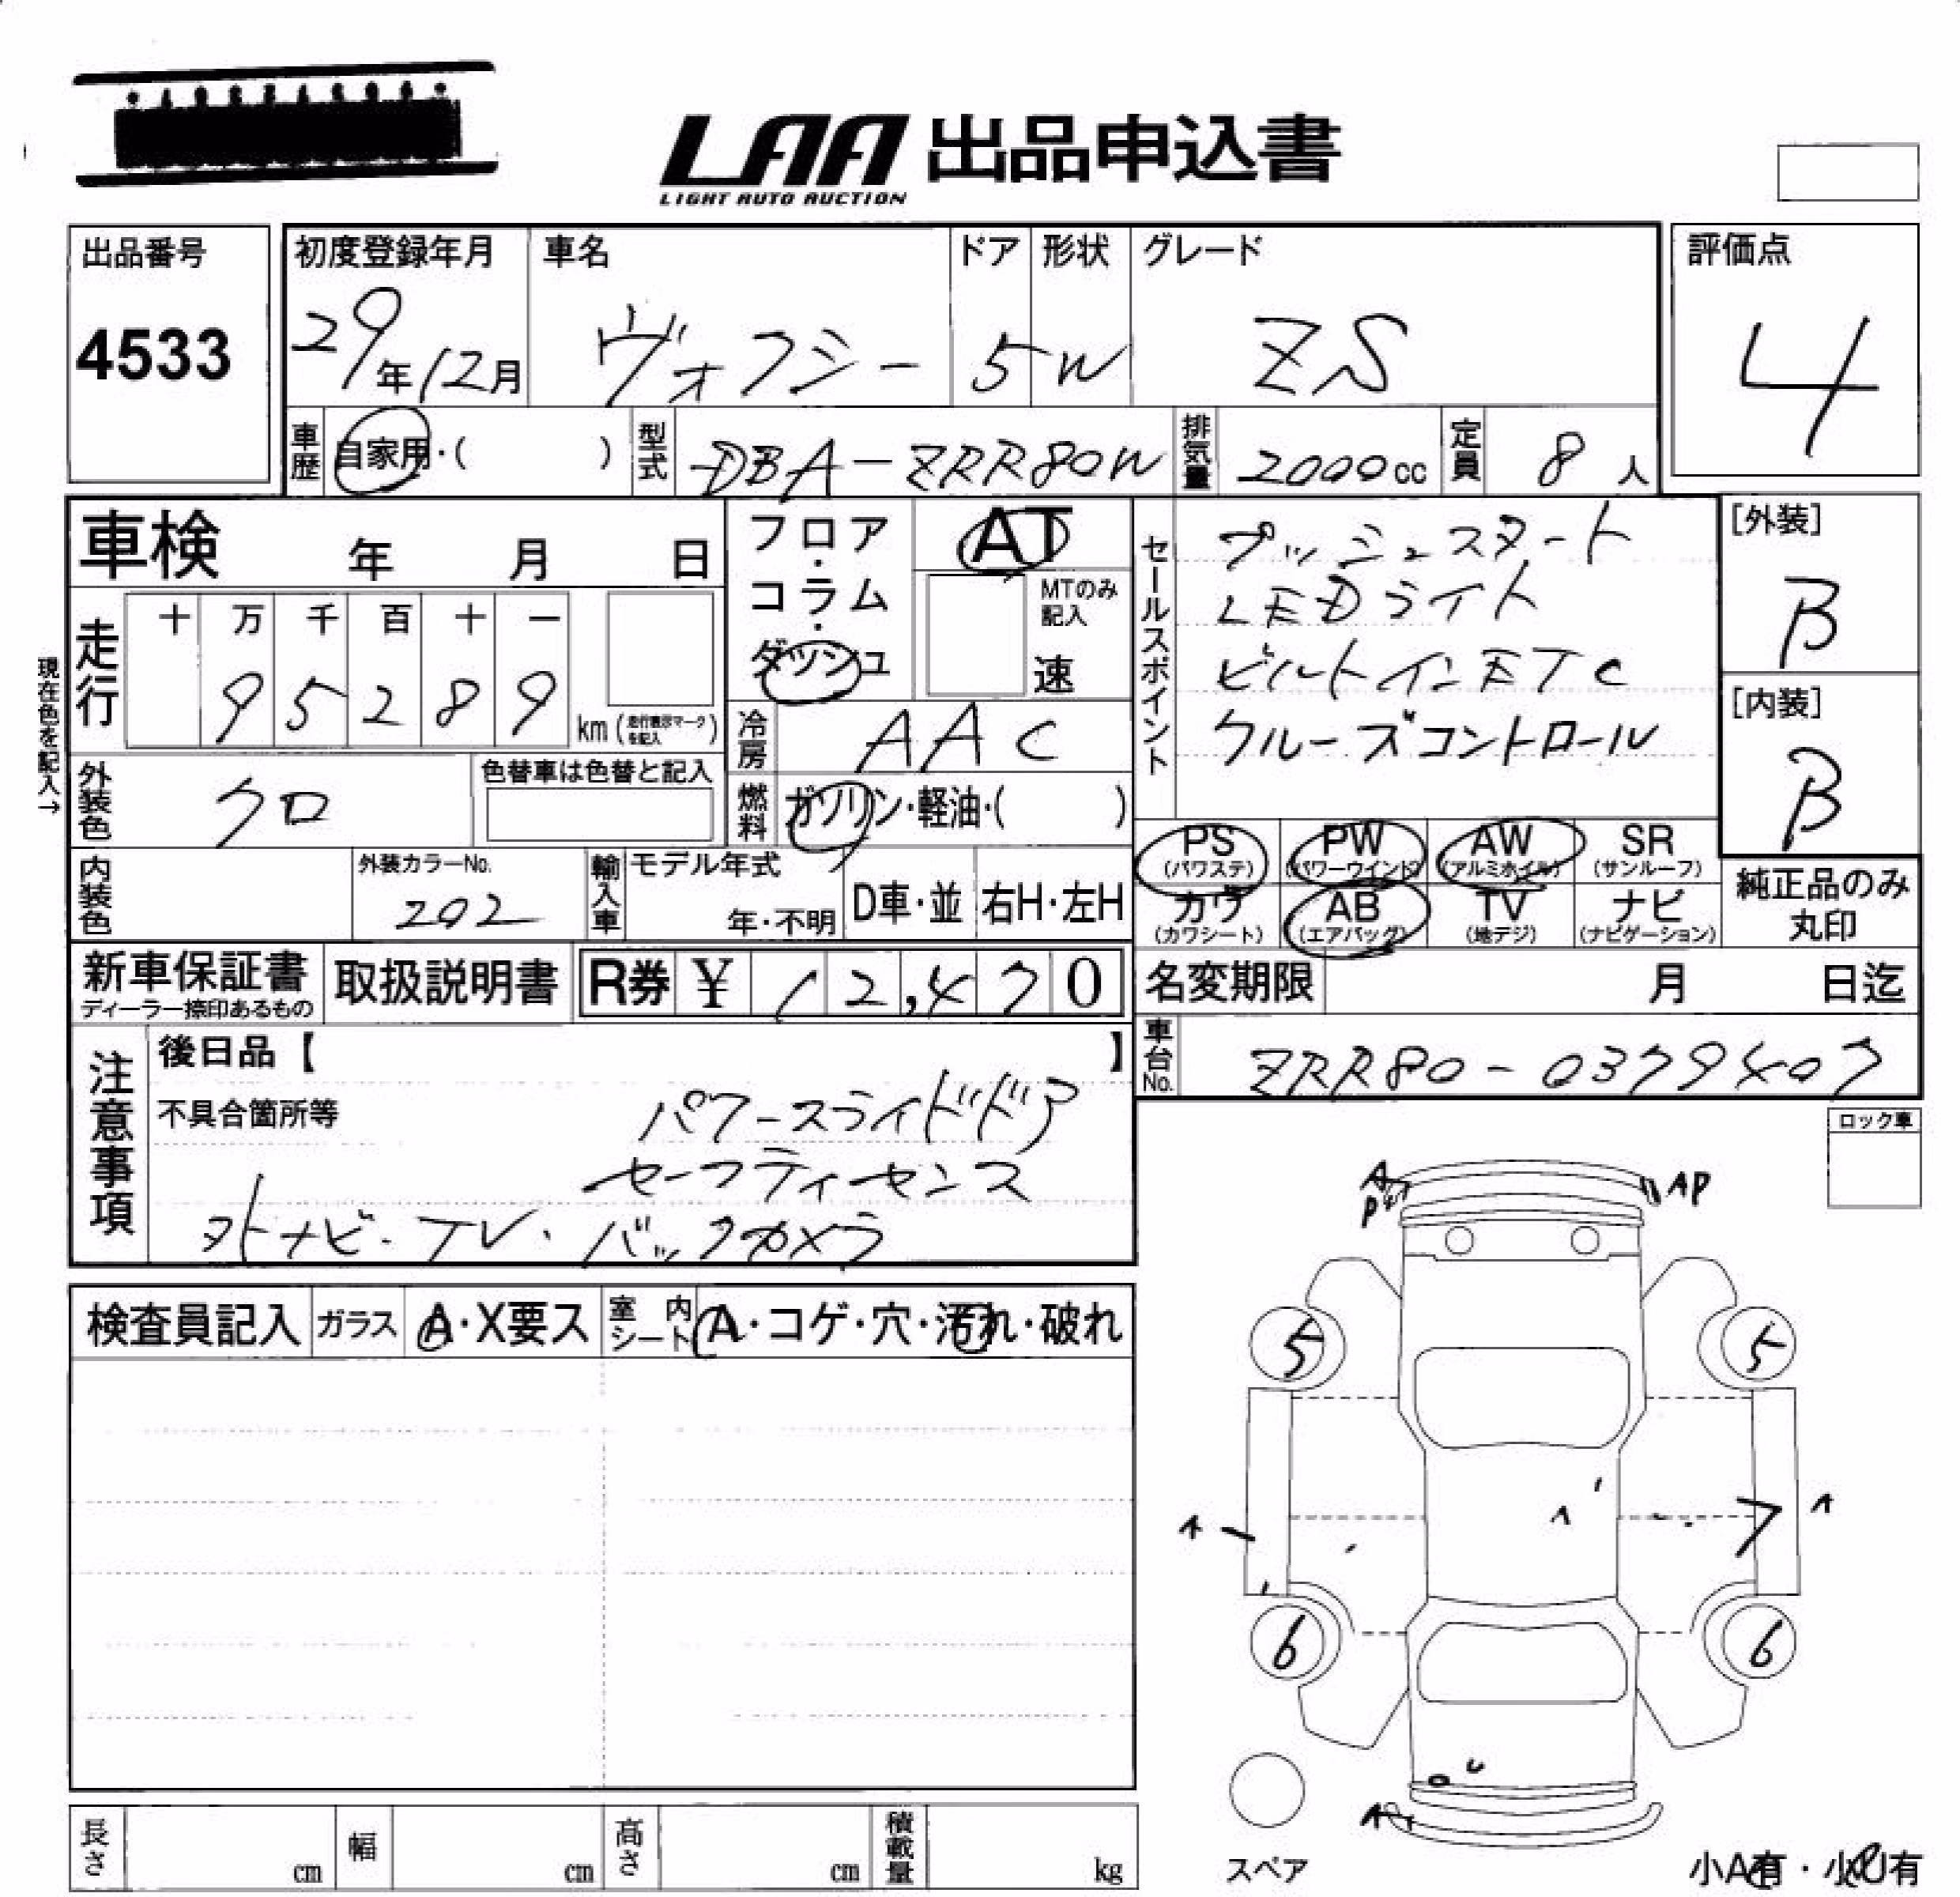 LAA 出品申込書
LIGHT AUTO AUCTION
出品番号
4533
初度登録年月
29年12月
車名
ヴォクシー
ドア
5
形状
W
グレード
ZS
評価点
4
車歴
自家用・( )
型式
DBA-ZRR80W
排気量
2000cc
定員
8人
車検 年 月 日
フロア・コラム・ダッシュ
AT
MTのみ記入
速
走行
十 万 千 百 十 一
9 5 2 8 9
km(走行表示マークを記入)
現在色を記入→
冷房
AAC
外装色
クロ
色替車は色替と記入
燃料
ガソリン・軽油・( )
内装色
外装カラーNo.
202
輸入車
モデル年式
年・不明
D車・並
右H・左H
セールスポイント
プッシュスタート
LEDライト
ビルトインETC
クルーズコントロール
[外装]
B
[内装]
B
PS
(パワステ)
PW
(パワーウインド)
AW
(アルミホイル)
SR
(サンルーフ)
カワ
(カワシート)
AB
(エアバッグ)
TV
(地デジ)
ナビ
(ナビゲーション)
純正品のみ
丸印
新車保証書
ディーラー捺印あるもの
取扱説明書
R券 ¥ 12,470
名変期限 月 日迄
車台No.
ZRR80-0379407
注意事項
後日品【 】
不具合箇所等
パワースライドドア
セーフティセンス
外ナビ・TV・バックカメラ
ロック車
検査員記入
ガラス
A・X要ス
室内シート
A・コゲ・穴・汚れ・破れ
A
P
AP
5
5
A
A
A
7
6
6
U
A
スペア
小A有・小U有
長さ cm
幅 cm
高さ cm
積載量 kg